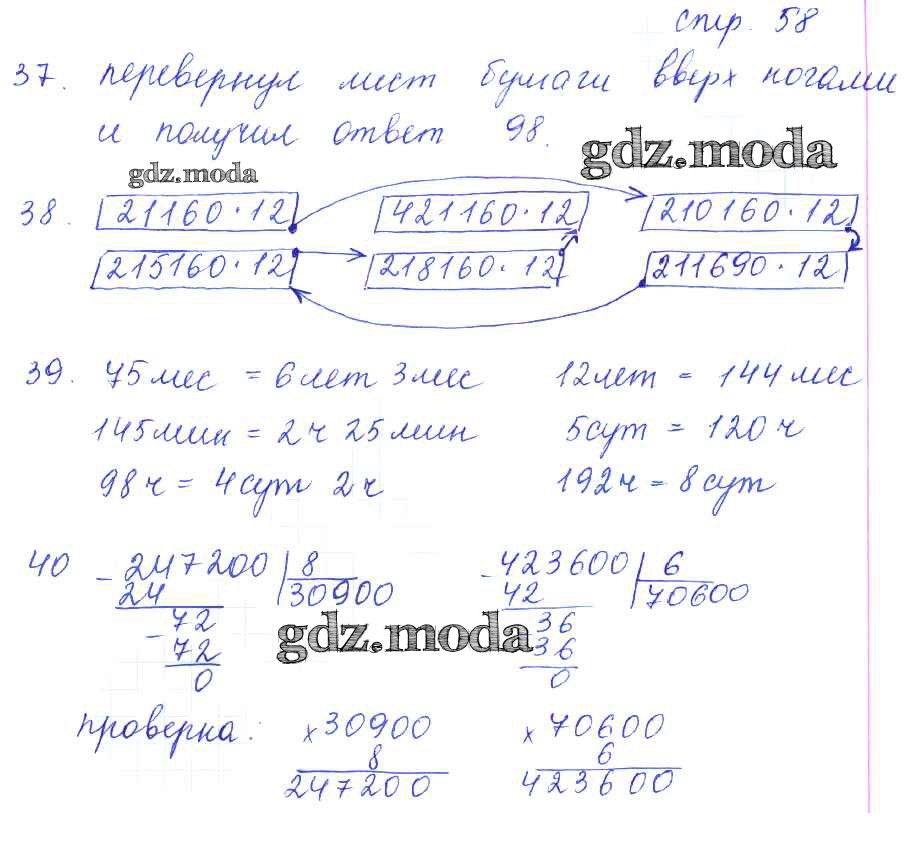 стр. 58
37. перевернул лист бумаги вверх ногами
и получил ответ 98.
gdz.moda
gdz.moda
38. 21160·12 421160·12 210160·12
215160·12 218160·12 211690·12
39. 75мес = 6лет 3мес 12лет = 144мес
145мин = 2ч 25мин 5сут = 120ч
98ч = 4сут 2ч 192ч = 8сут
40 - 247200 | 8 - 423600 | 6
24 30900 42 70600
- 72 36
72 36
0 0
gdz.moda
проверка: × 30900 × 70600
8 6
247200 423600